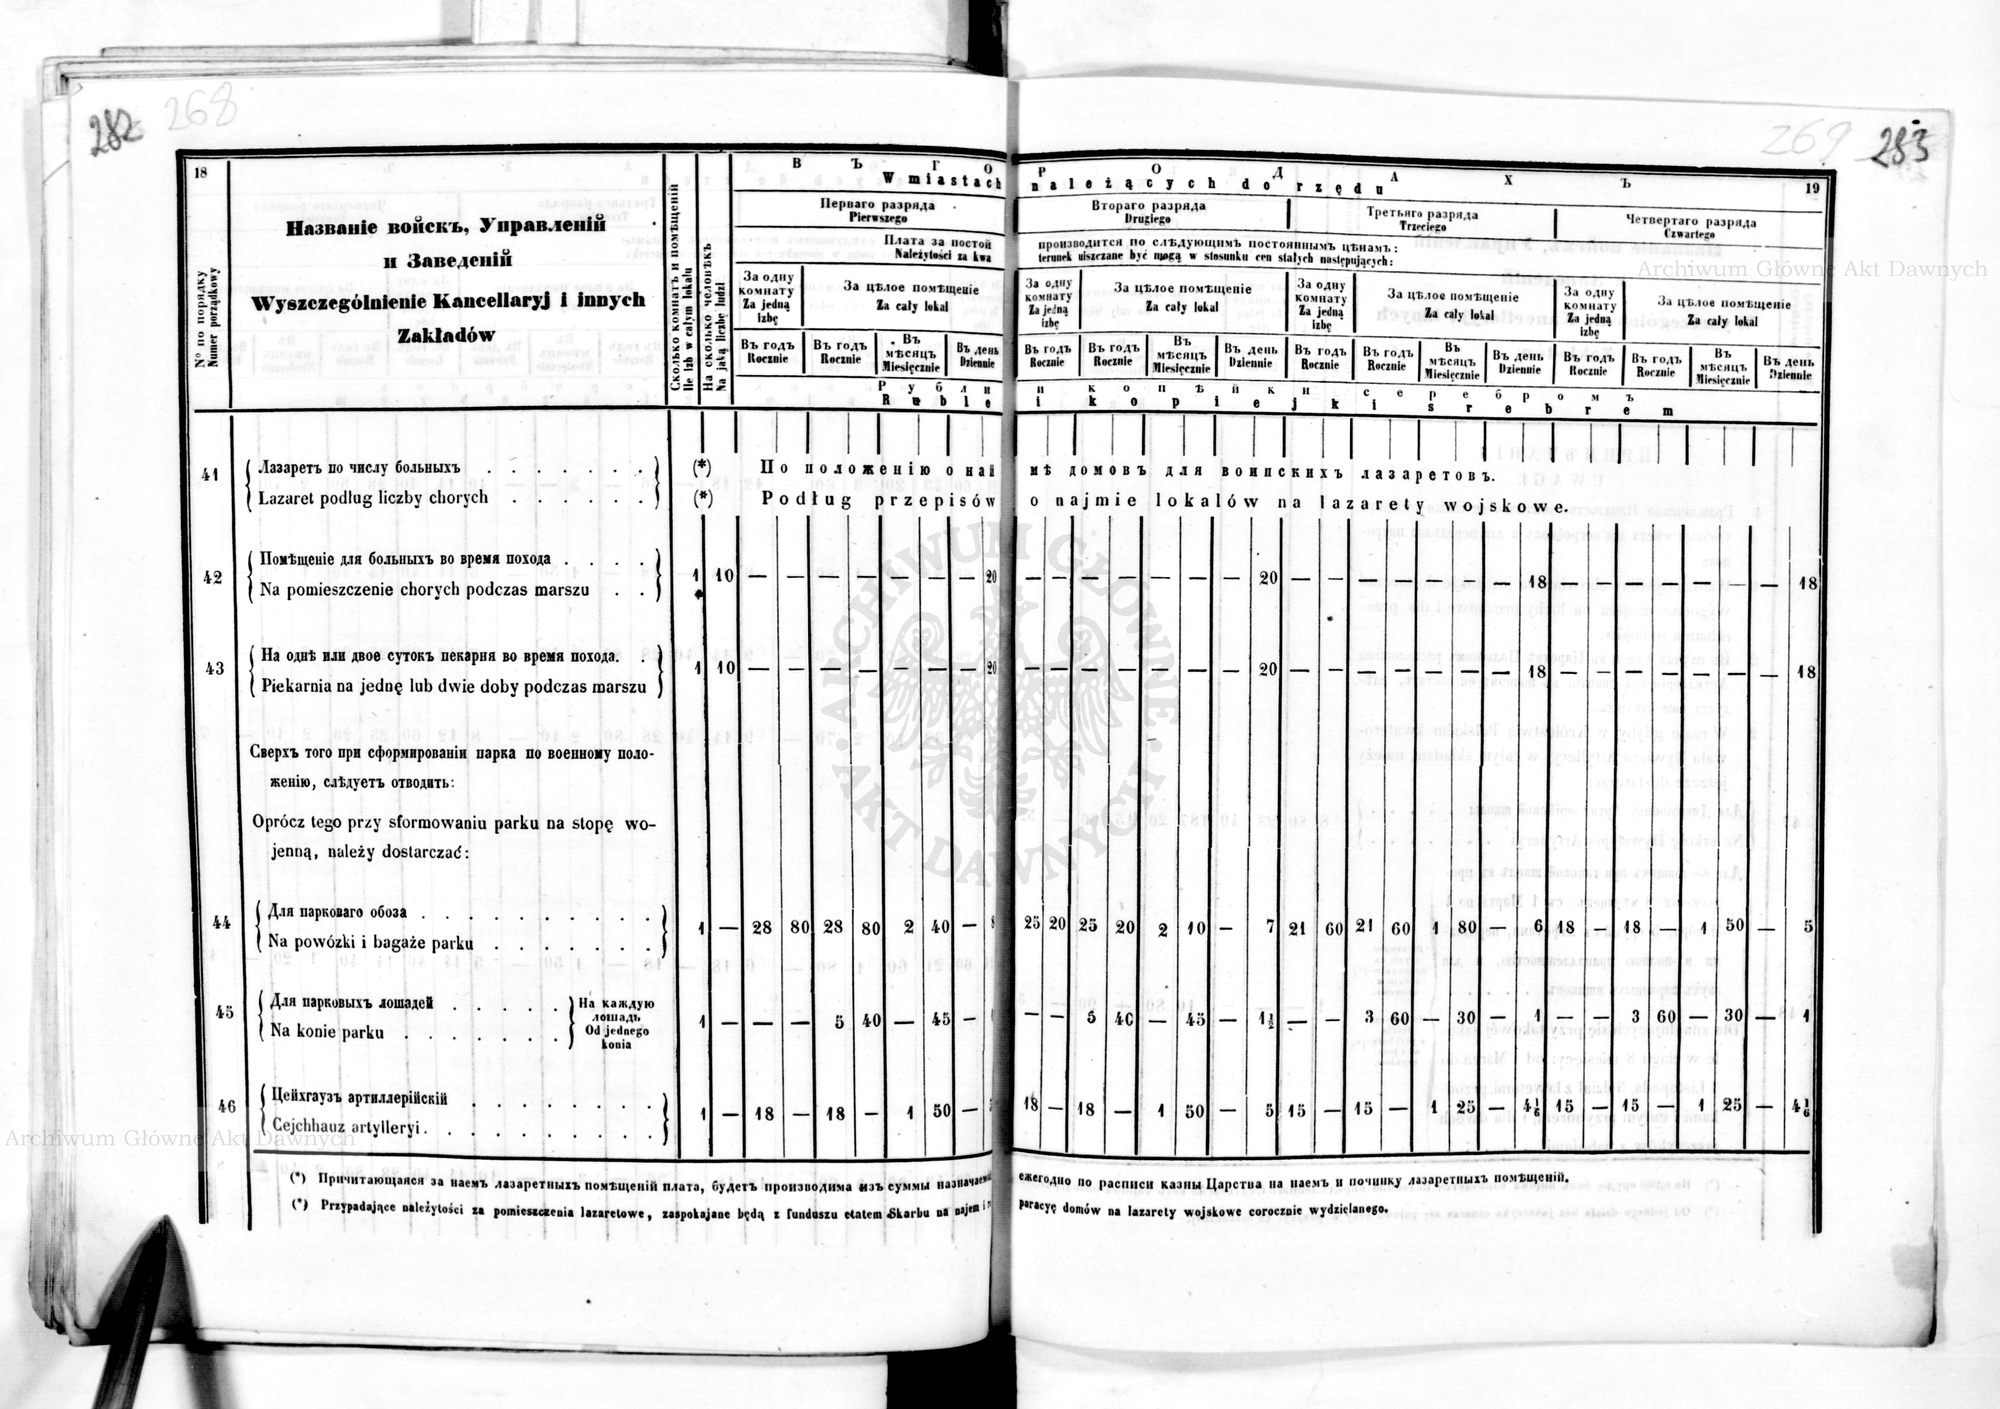 282 268
269 283
18
19
ВЪ ГОРОДАХЪ
W miastach należących do rzędu
№ по порядку
Numer porządkowy
Названіе войскъ, Управленій
и Заведеній
Wyszczególnienie Kancellaryj i innych
Zakładów
Сколько комнатъ и помѣщеній
Ile izb w całym lokalu
На сколько человѣкъ
Na jaką liczbę ludzi
Перваго разряда
Pierwszego
Втораго разряда
Drugiego
Третьяго разряда
Trzeciego
Четвертаго разряда
Czwartego
Плата за постой производится по слѣдующимъ постояннымъ цѣнамъ:
Należytości za kwaterunek uiszczane być mogą w stosunku cen stałych następujących:
За одну комнату
Za jedną izbę
За цѣлое помѣщеніе
Za cały lokal
За одну комнату
Za jedną izbę
За цѣлое помѣщеніе
Za cały lokal
За одну комнату
Za jedną izbę
За цѣлое помѣщеніе
Za cały lokal
За одну комнату
Za jedną izbę
За цѣлое помѣщеніе
Za cały lokal
Въ годъ Въ годъ Въ мѣсяцъ Въ день Въ годъ Въ годъ Въ мѣсяцъ Въ день Въ годъ Въ годъ Въ мѣсяцъ Въ день Въ годъ Въ годъ Въ мѣсяцъ Въ день
Rocznie Rocznie Miesięcznie Dziennie Rocznie Rocznie Miesięcznie Dziennie Rocznie Rocznie Miesięcznie Dziennie Rocznie Rocznie Miesięcznie Dziennie
Рубли и копѣйки серебромъ
Ruble i kopiejki srebrem
41 Лазаретъ по числу больныхъ . . . . . . . (*) По положенію о наймѣ домовъ для воинскихъ лазаретовъ.
Lazaret podług liczby chorych . . . . . . (*) Podług przepisów o najmie lokalów na lazarety wojskowe.
42 Помѣщеніе для больныхъ во время похода . . . .
Na pomieszczenie chorych podczas marszu . .
1 10 — — — — — — — 20 — — — — — — — 20 — — — — — — — 18 — — — — — — — 18
43 На однѣ или двое сутокъ пекарня во время похода. .
Piekarnia na jednę lub dwie doby podczas marszu
1 10 — — — — — — — 20 — — — — — — — 20 — — — — — — — 18 — — — — — — — 18
Сверхъ того при сформированіи парка по военному поло-
женію, слѣдуетъ отводить:
Oprócz tego przy sformowaniu parku na stopę wo-
jenną, należy dostarczać:
44 Для парковаго обоза . . . . . . . . . .
Na powózki i bagaże parku . . . . . . .
1 — 28 80 28 80 2 40 — 8 25 20 25 20 2 10 — 7 21 60 21 60 1 80 — 6 18 — 18 — 1 50 — 5
45 Для парковыхъ лошадей . . . . . На каждую лошадь
Na konie parku . . . . . . . Od jednego konia
1 — — — 5 40 — 45 — — — 5 40 — 45 — 1½ — — 3 60 — 30 — 1 — — 3 60 — 30 — 1
46 Цейхгаузъ артиллерійскій . . . . . . . .
Cejchhauz artylleryi . . . . . . . . . .
1 — 18 — 18 — 1 50 — 18 — 18 — 1 50 — 5 15 — 15 — 1 25 — 4⅙ 15 — 15 — 1 25 — 4⅙
(*) Причитающаяся за наемъ лазаретныхъ помѣщеній плата, будетъ производима изъ суммы назначаемой ежегодно по расписи казны Царства на наемъ и починку лазаретныхъ помѣщеній.
(*) Przypadające należytości za pomieszczenia lazaretowe, zaspokajane będą z funduszu etatem Skarbu na najem i reparacyę domów na lazarety wojskowe corocznie wydzielanego.
Archiwum Główne Akt Dawnych
Archiwum Główne Akt Dawnych
ARCHIWUM GŁÓWNE · AKT DAWNYCH ·